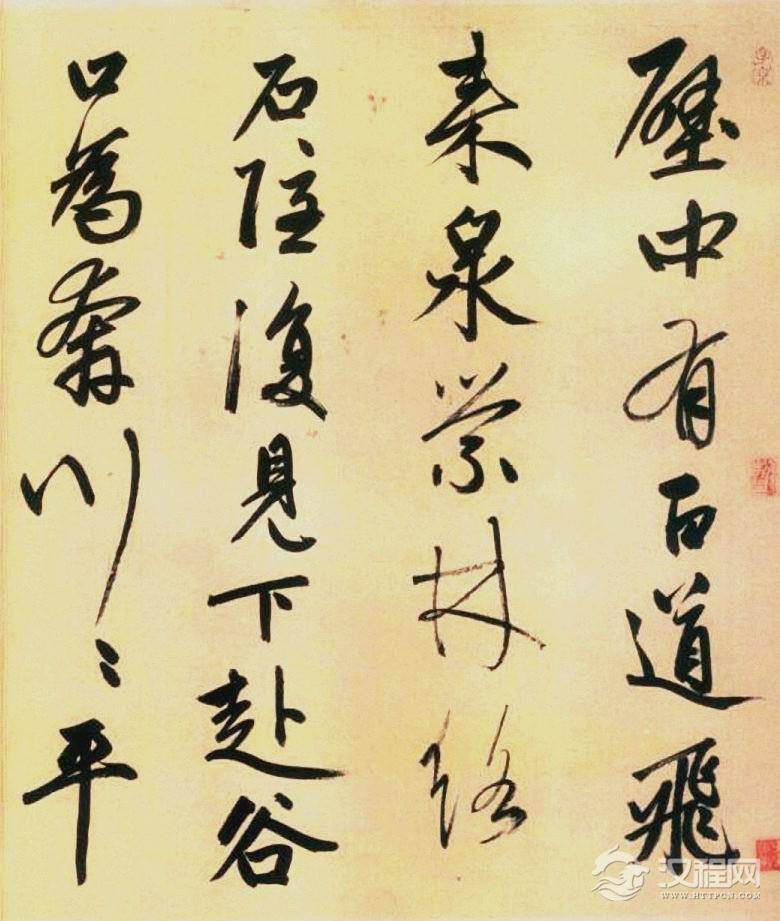 壁中有百道飛
來泉縈林絡
石隱復見下赴谷
口為奔川〻平
汉程网
WWW.HTTPCN.COM